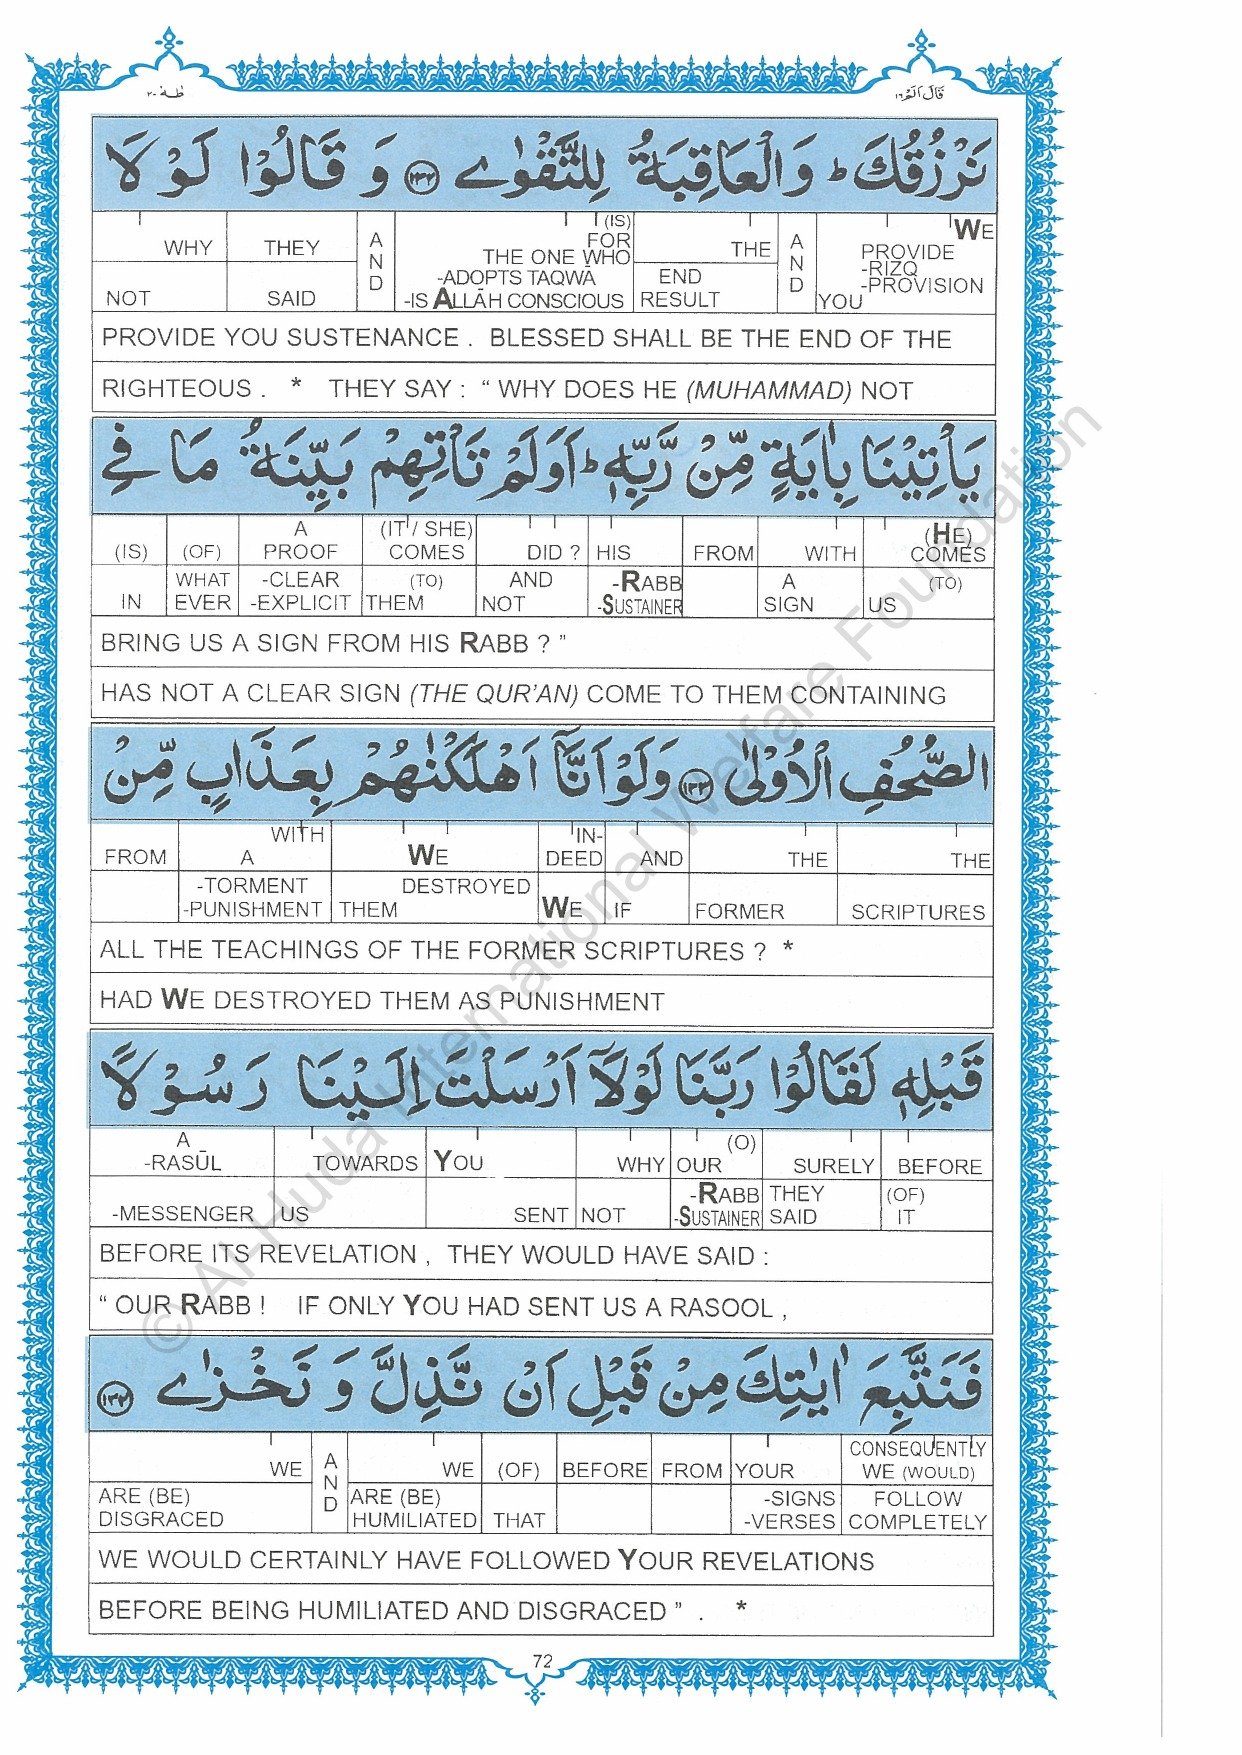 قَالَ اَلَمْ ١٦
طٰهٰ ٢٠
نَرْزُقُكَ ؕ وَالْعَاقِبَةُ لِلتَّقْوٰى ﴿١٣٢﴾ وَ قَالُوْا لَوْ لَا
WE PROVIDE -RIZQ -PROVISION YOU | AND | THE END RESULT | (IS) FOR THE ONE WHO -ADOPTS TAQWĀ -IS ALLĀH CONSCIOUS | AND | THEY SAID | WHY NOT
PROVIDE YOU SUSTENANCE . BLESSED SHALL BE THE END OF THE
RIGHTEOUS . * THEY SAY : “ WHY DOES HE (MUHAMMAD) NOT
يَاْتِيْنَا بِاٰيَةٍ مِّنْ رَّبِّهٖ ؕ اَوَلَمْ تَاْتِهِمْ بَيِّنَةُ مَا فِى
(HE) COMES (TO) US | WITH A SIGN | FROM | HIS -RABB -SUSTAINER | DID ? AND NOT | (IT / SHE) COMES (TO) THEM | A PROOF -CLEAR -EXPLICIT | (OF) WHAT EVER | (IS) IN
BRING US A SIGN FROM HIS RABB ? ”
HAS NOT A CLEAR SIGN (THE QUR’AN) COME TO THEM CONTAINING
الصُّحُفِ الْاُوْلٰى ﴿١٣٣﴾ وَلَوْ اَنَّاۤ اَهْلَكْنٰهُمْ بِعَذَابٍ مِّنْ
THE SCRIPTURES | THE FORMER | AND IF | IN-DEED WE | WE DESTROYED THEM | WITH A -TORMENT -PUNISHMENT | FROM
ALL THE TEACHINGS OF THE FORMER SCRIPTURES ? *
HAD WE DESTROYED THEM AS PUNISHMENT
قَبْلِهٖ لَقَالُوْا رَبَّنَا لَوْلَاۤ اَرْسَلْتَ اِلَيْنَا رَسُوْلًا
BEFORE (OF) IT | SURELY THEY SAID | (O) OUR -RABB -SUSTAINER | WHY NOT | YOU SENT | TOWARDS US | A -RASŪL -MESSENGER
BEFORE ITS REVELATION , THEY WOULD HAVE SAID :
“ OUR RABB ! IF ONLY YOU HAD SENT US A RASOOL ,
فَنَتَّبِعَ اٰيٰتِكَ مِنْ قَبْلِ اَنْ نَّذِلَّ وَ نَخْزٰى ﴿١٣٤﴾
CONSEQUENTLY WE (WOULD) FOLLOW COMPLETELY | YOUR -SIGNS -VERSES | FROM | BEFORE | (OF) THAT | WE ARE (BE) HUMILIATED | AND | WE ARE (BE) DISGRACED
WE WOULD CERTAINLY HAVE FOLLOWED YOUR REVELATIONS
BEFORE BEING HUMILIATED AND DISGRACED ” . *
72
© Al-Huda International Welfare Foundation